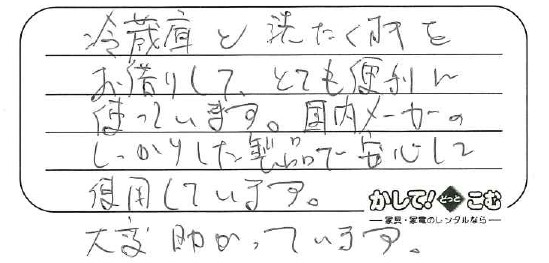 冷蔵庫と洗たく机を
お借りして、とても便利に
使っています。国内メーカーの
しっかりした製品で安心して
使用しています。
かして!どっとこむ
家具・家電のレンタルなら
大変助かっています。